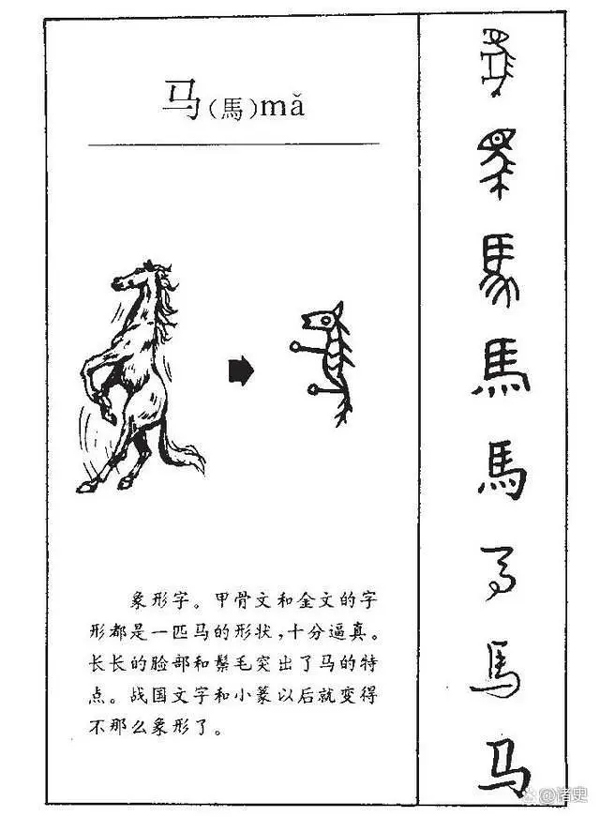 马(馬)mǎ
象形字。甲骨文和金文的字
形都是一匹马的形状,十分逼真。
长长的脸部和鬃毛突出了马的特
点。战国文字和小篆以后就变得
不那么象形了。
馬
馬
馬
马
馬
马
@诸史